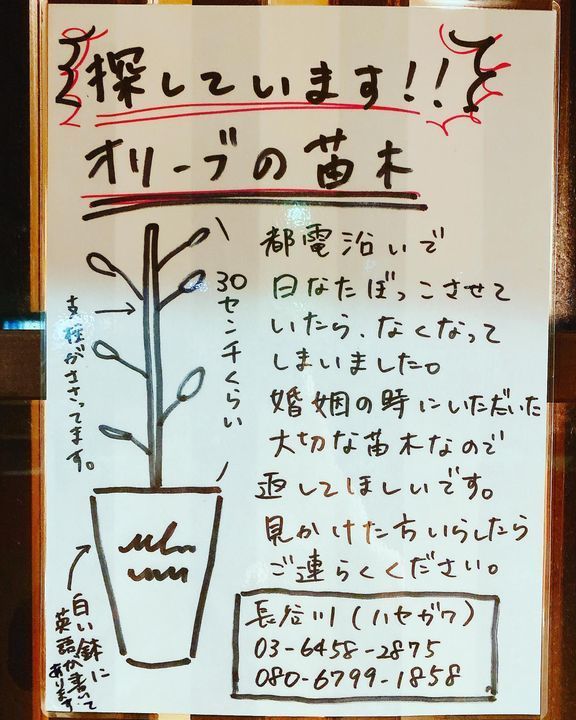 探しています!!
オリーブの苗木
都電沿いで
日なたぼっこさせて
いたら、なくなって
しまいました。
婚姻の時にいただいた
大切な苗木なので
返してほしいです。
見かけた方いらしたら
ご連らくください。
30センチくらい
支柱がささってます。
白い鉢に
英語が書いて
あります
長谷川(ハセガワ)
03-6458-2875
080-6799-1858